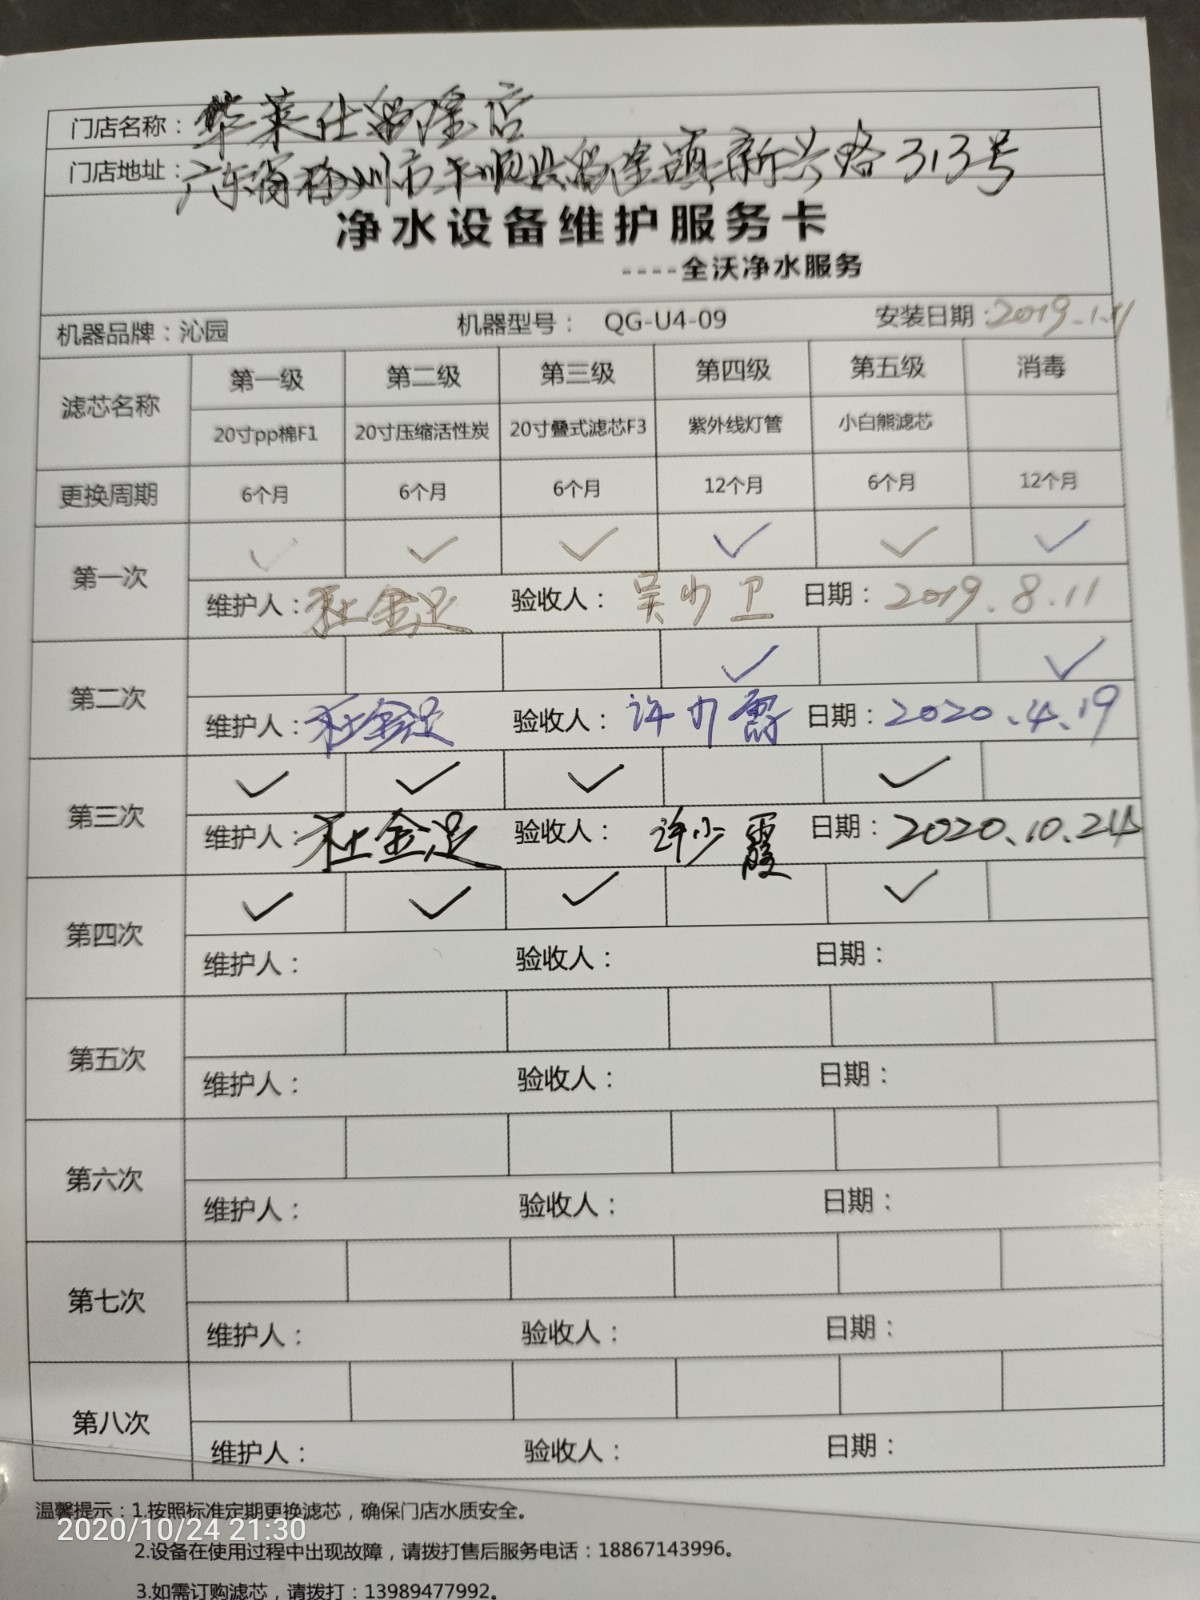 门店名称：华莱士留隍店
门店地址：广东省梅州市丰顺县留隍镇新兴路313号
净水设备维护服务卡
----全沃净水服务
机器品牌：沁园 机器型号： QG-U4-09 安装日期：2019.1.11
滤芯名称 第一级 第二级 第三级 第四级 第五级 消毒
20寸pp棉F1 20寸压缩活性炭 20寸叠式滤芯F3 紫外线灯管 小白熊滤芯
更换周期 6个月 6个月 6个月 12个月 6个月 12个月
第一次 ✓ ✓ ✓ ✓ ✓ ✓
维护人：杜金足 验收人：吴少卫 日期：2019.8.11
第二次 ✓ ✓
维护人：杜金足 验收人：许少霞 日期：2020.4.19
第三次 ✓ ✓ ✓ ✓
维护人：杜金足 验收人：许少霞 日期：2020.10.24
第四次 ✓ ✓ ✓ ✓
维护人： 验收人： 日期：
第五次
维护人： 验收人： 日期：
第六次
维护人： 验收人： 日期：
第七次
维护人： 验收人： 日期：
第八次
维护人： 验收人： 日期：
温馨提示：1.按照标准定期更换滤芯，确保门店水质安全。
2020/10/24 21:30
2.设备在使用过程中出现故障，请拨打售后服务电话：18867143996。
3.如需订购滤芯，请拨打：13989477992。